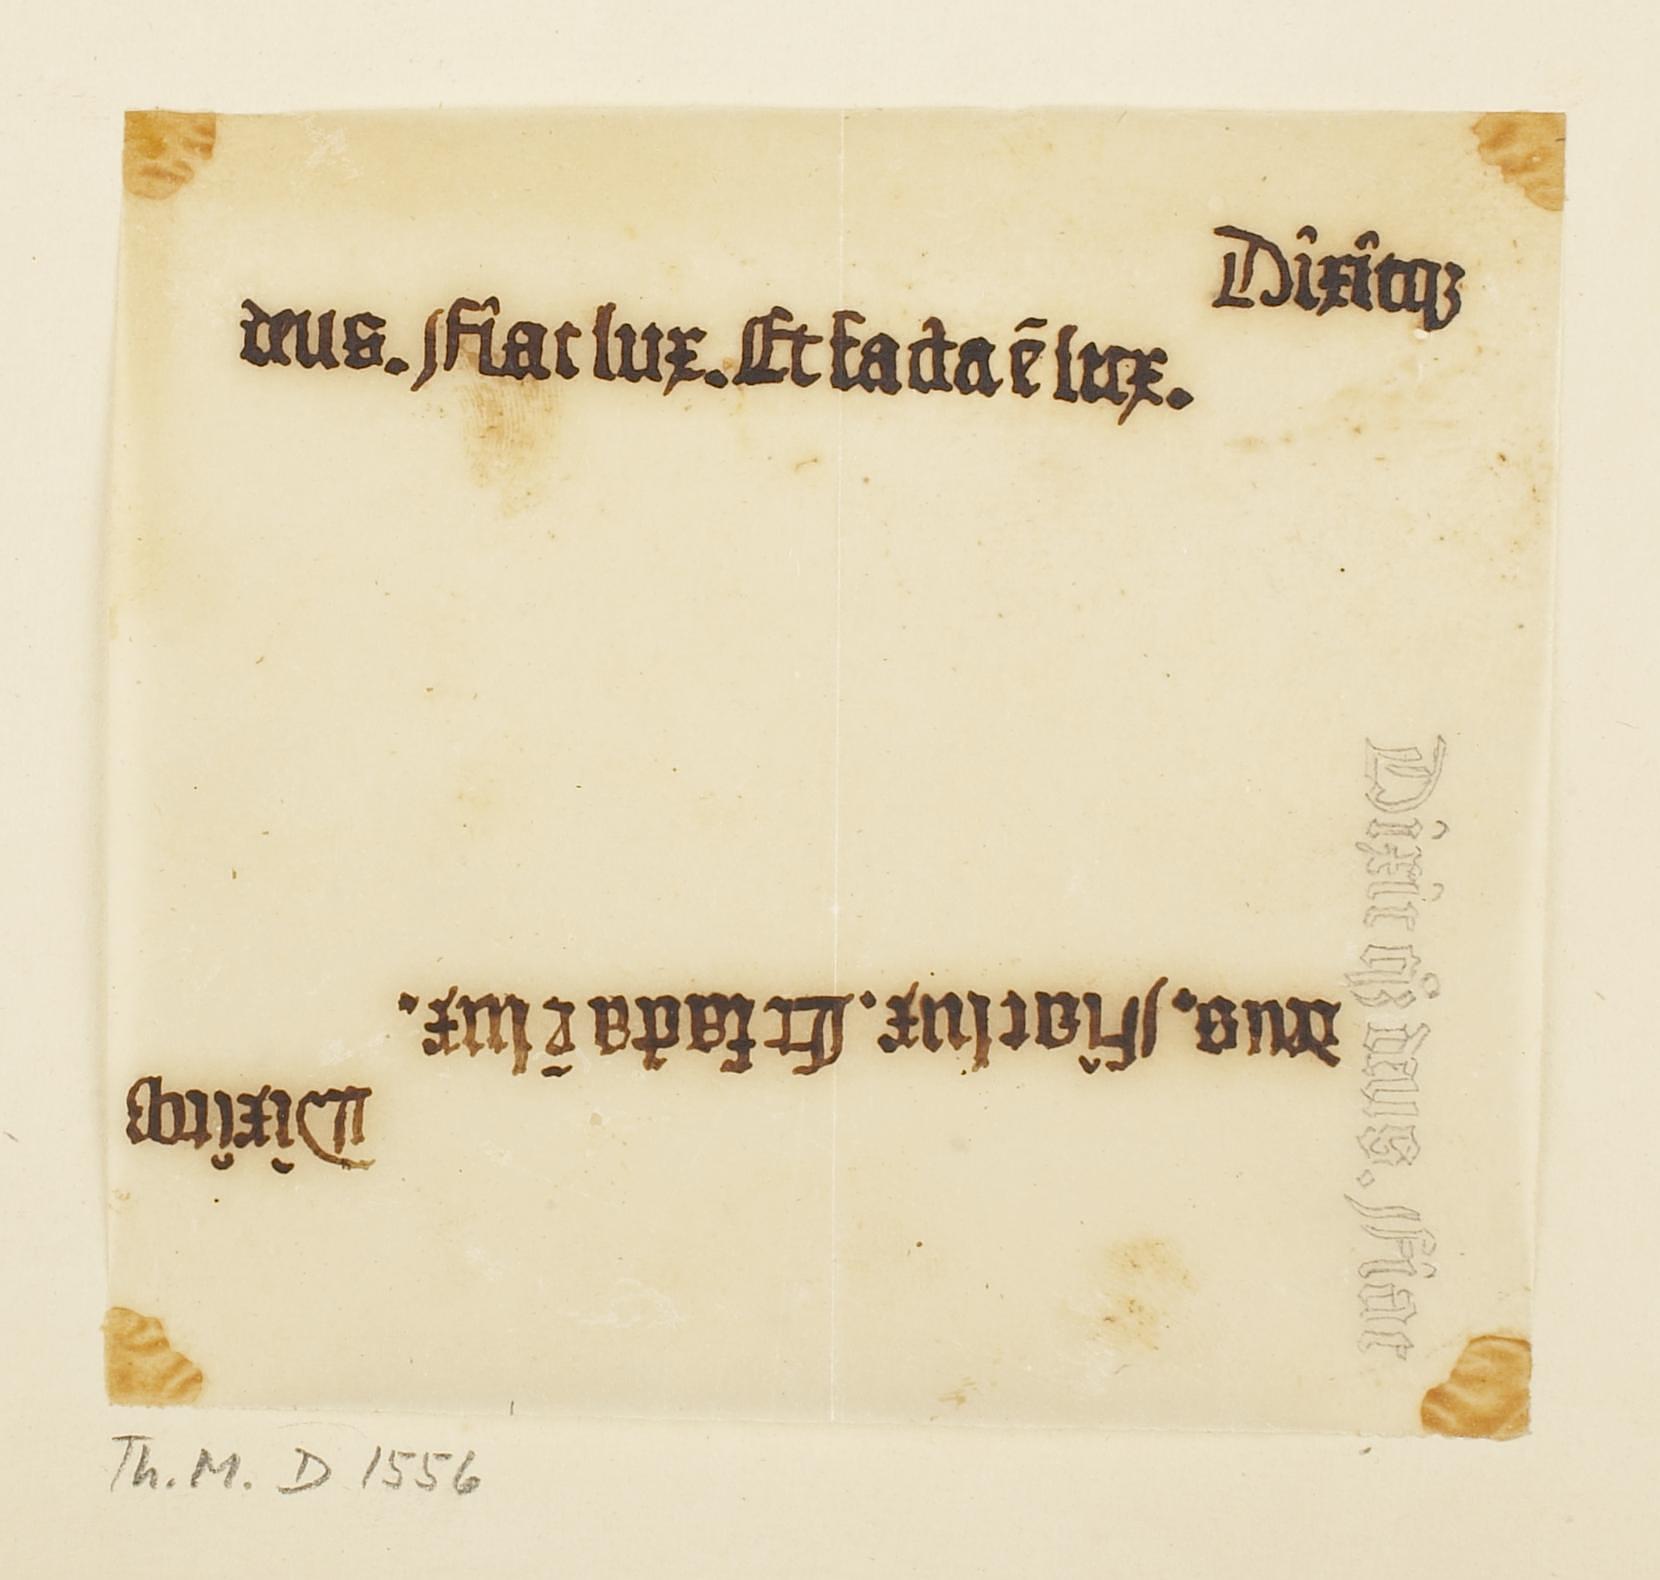 Dixitqꝫ
deus. Fiat lux. Et facta ē lux.
Dixit qꝫ deus. Fiat
deus. Fiat lux. Et facta ē lux.
Dixitqꝫ
Th. M. D 1556